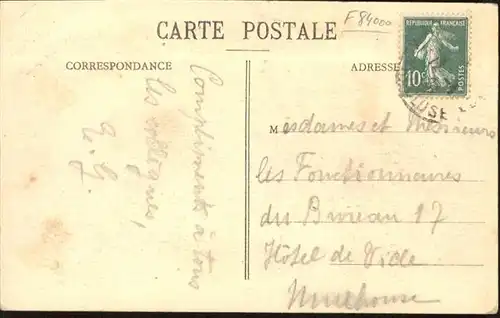 CARTE POSTALE
F 84000
RÉPUBLIQUE FRANÇAISE
10c
POSTES
CORRESPONDANCE
ADRESSE
Compliments à tous
les collègues,
Mesdames et Messieurs
les Fonctionnaires
du Bureau 17
Hôtel de Ville
Mulhouse